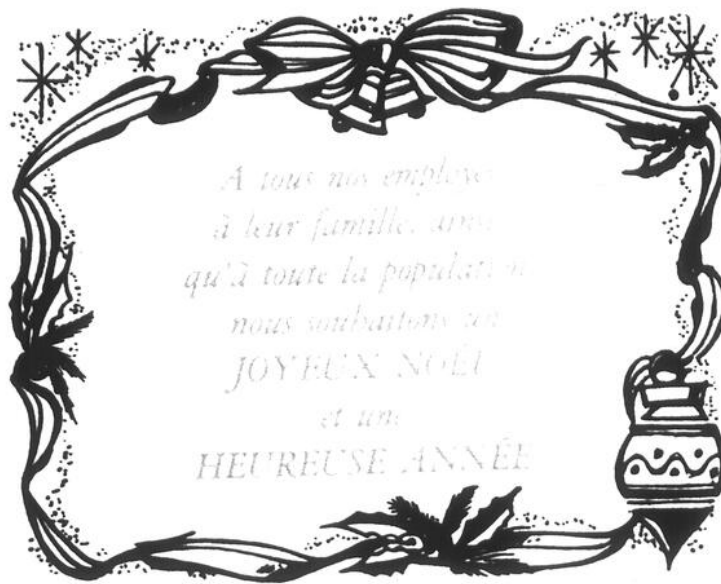 A tous nos employé
à leur famille, ainsi
qu'à toute la population
nous souhaitons un
JOYEUX NOËL
et une
HEUREUSE ANNÉE